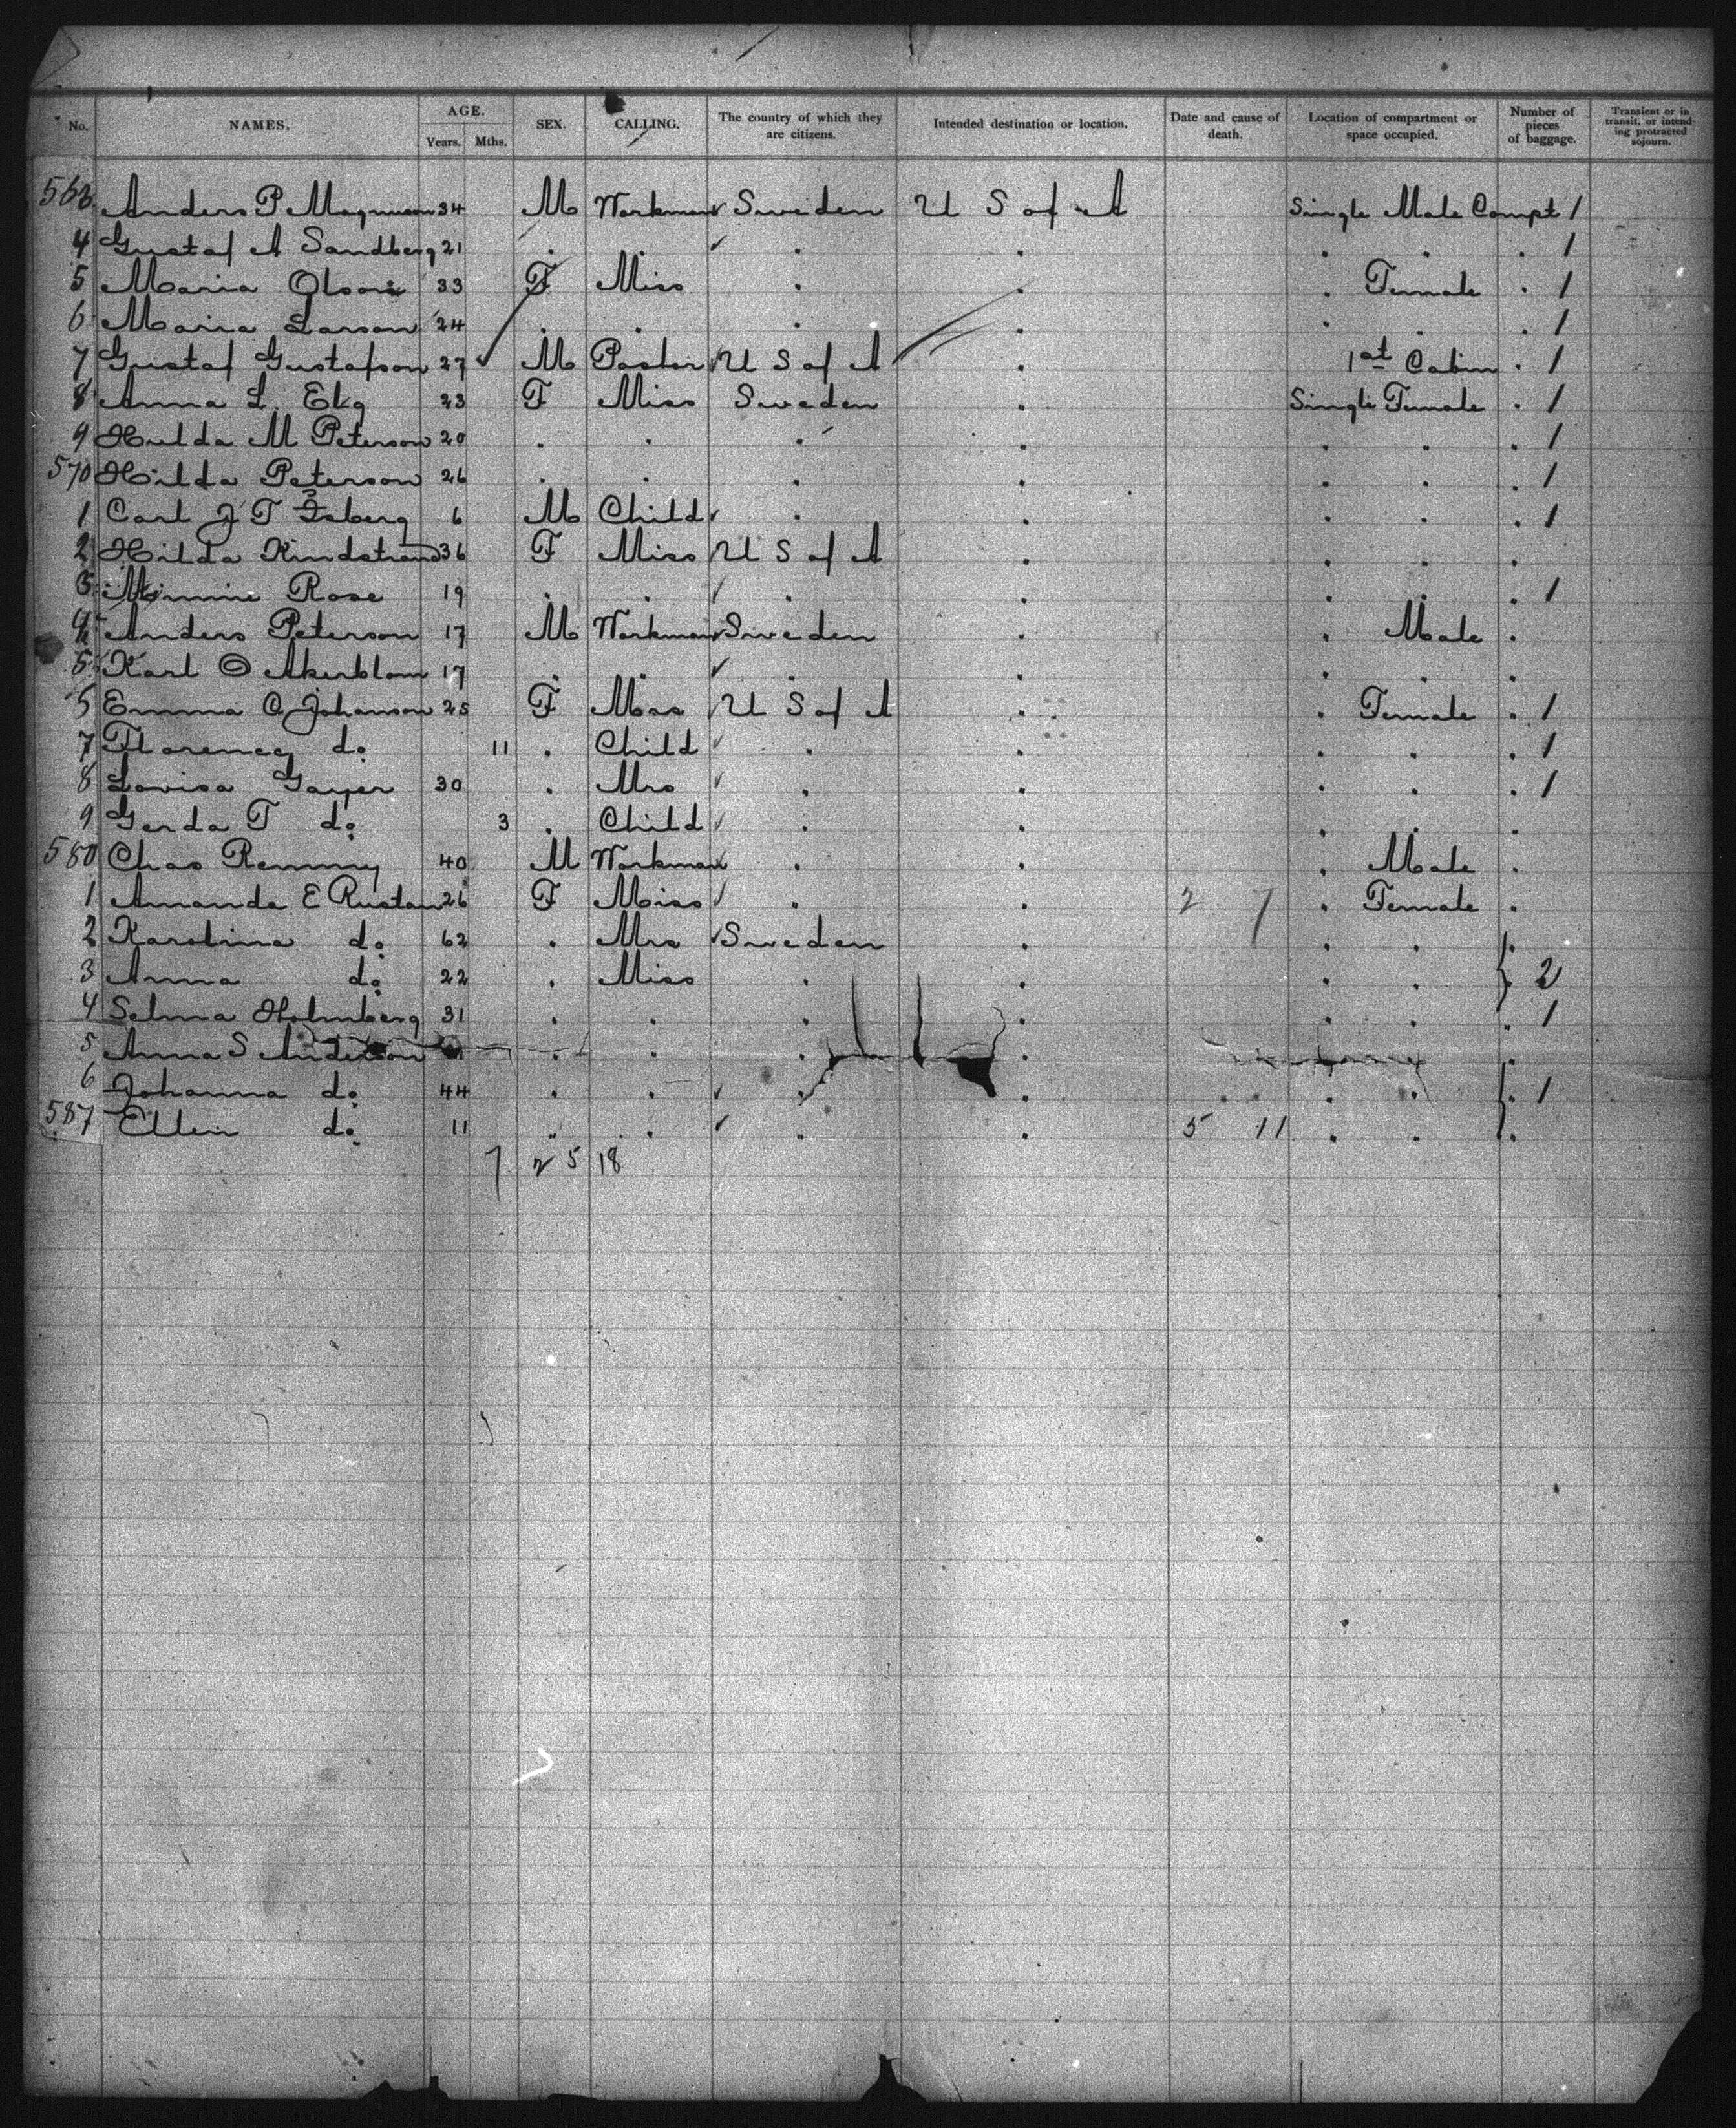 No. NAMES. AGE. Years. Mths. SEX. CALLING. The country of which they are citizens. Intended destination or location. Date and cause of death. Location of compartment or space occupied. Number of pieces of baggage. Transient or in transit, or intending protracted sojourn.
563 Anders P Magnuson 34 M Workman Sweden U S of A Single Male Compt 1
4 Gustaf A Sandberg 21 . . . . . . . 1
5 Maria Olson 33 F Miss . . . Female . 1
6 Maria Larson 24 . . . . . . . 1
7 Gustaf Gustafson 27 M Pastor U S of A . 1st Cabin . 1
8 Anna L Ekg 23 F Miss Sweden . Single Female . 1
9 Hulda M Peterson 20 . . . . . . . 1
570 Hilda Peterson 26 . . . . . . . 1
1 Carl J T Isberg 6 M Child . . . . . 1
2 Hilda Kindstrand 36 F Miss U S of A . . . .
3 Minnie Rose 19 . . . . . . . 1
4 Anders Peterson 17 M Workman Sweden . . Male .
5 Karl O Akerblom 17 . . . . . .
5 Emma C Johanson 25 F Mrs U S of A . . Female . 1
7 Florency do 11 . Child . . . . . 1
8 Lovisa Gayer 30 . Mrs . . . . . 1
9 Gerda T do 3 . Child . . . . .
580 Chas Remmy 40 M Workman . . . Male .
1 Amanda E Rustan 26 F Miss . . 2 7 . Female .
2 Karolina do 62 . Mrs Sweden . . . .
3 Anna do 22 . Miss . . . . 2
4 Selma Holmberg 31 . . . . . . . 1
5 Anna S Anderson . . . . . . .
6 Johanna do 44 . . . . . . . 1
587 Ellen do 11 . . . . 5 11 . . .
7 2 5 18